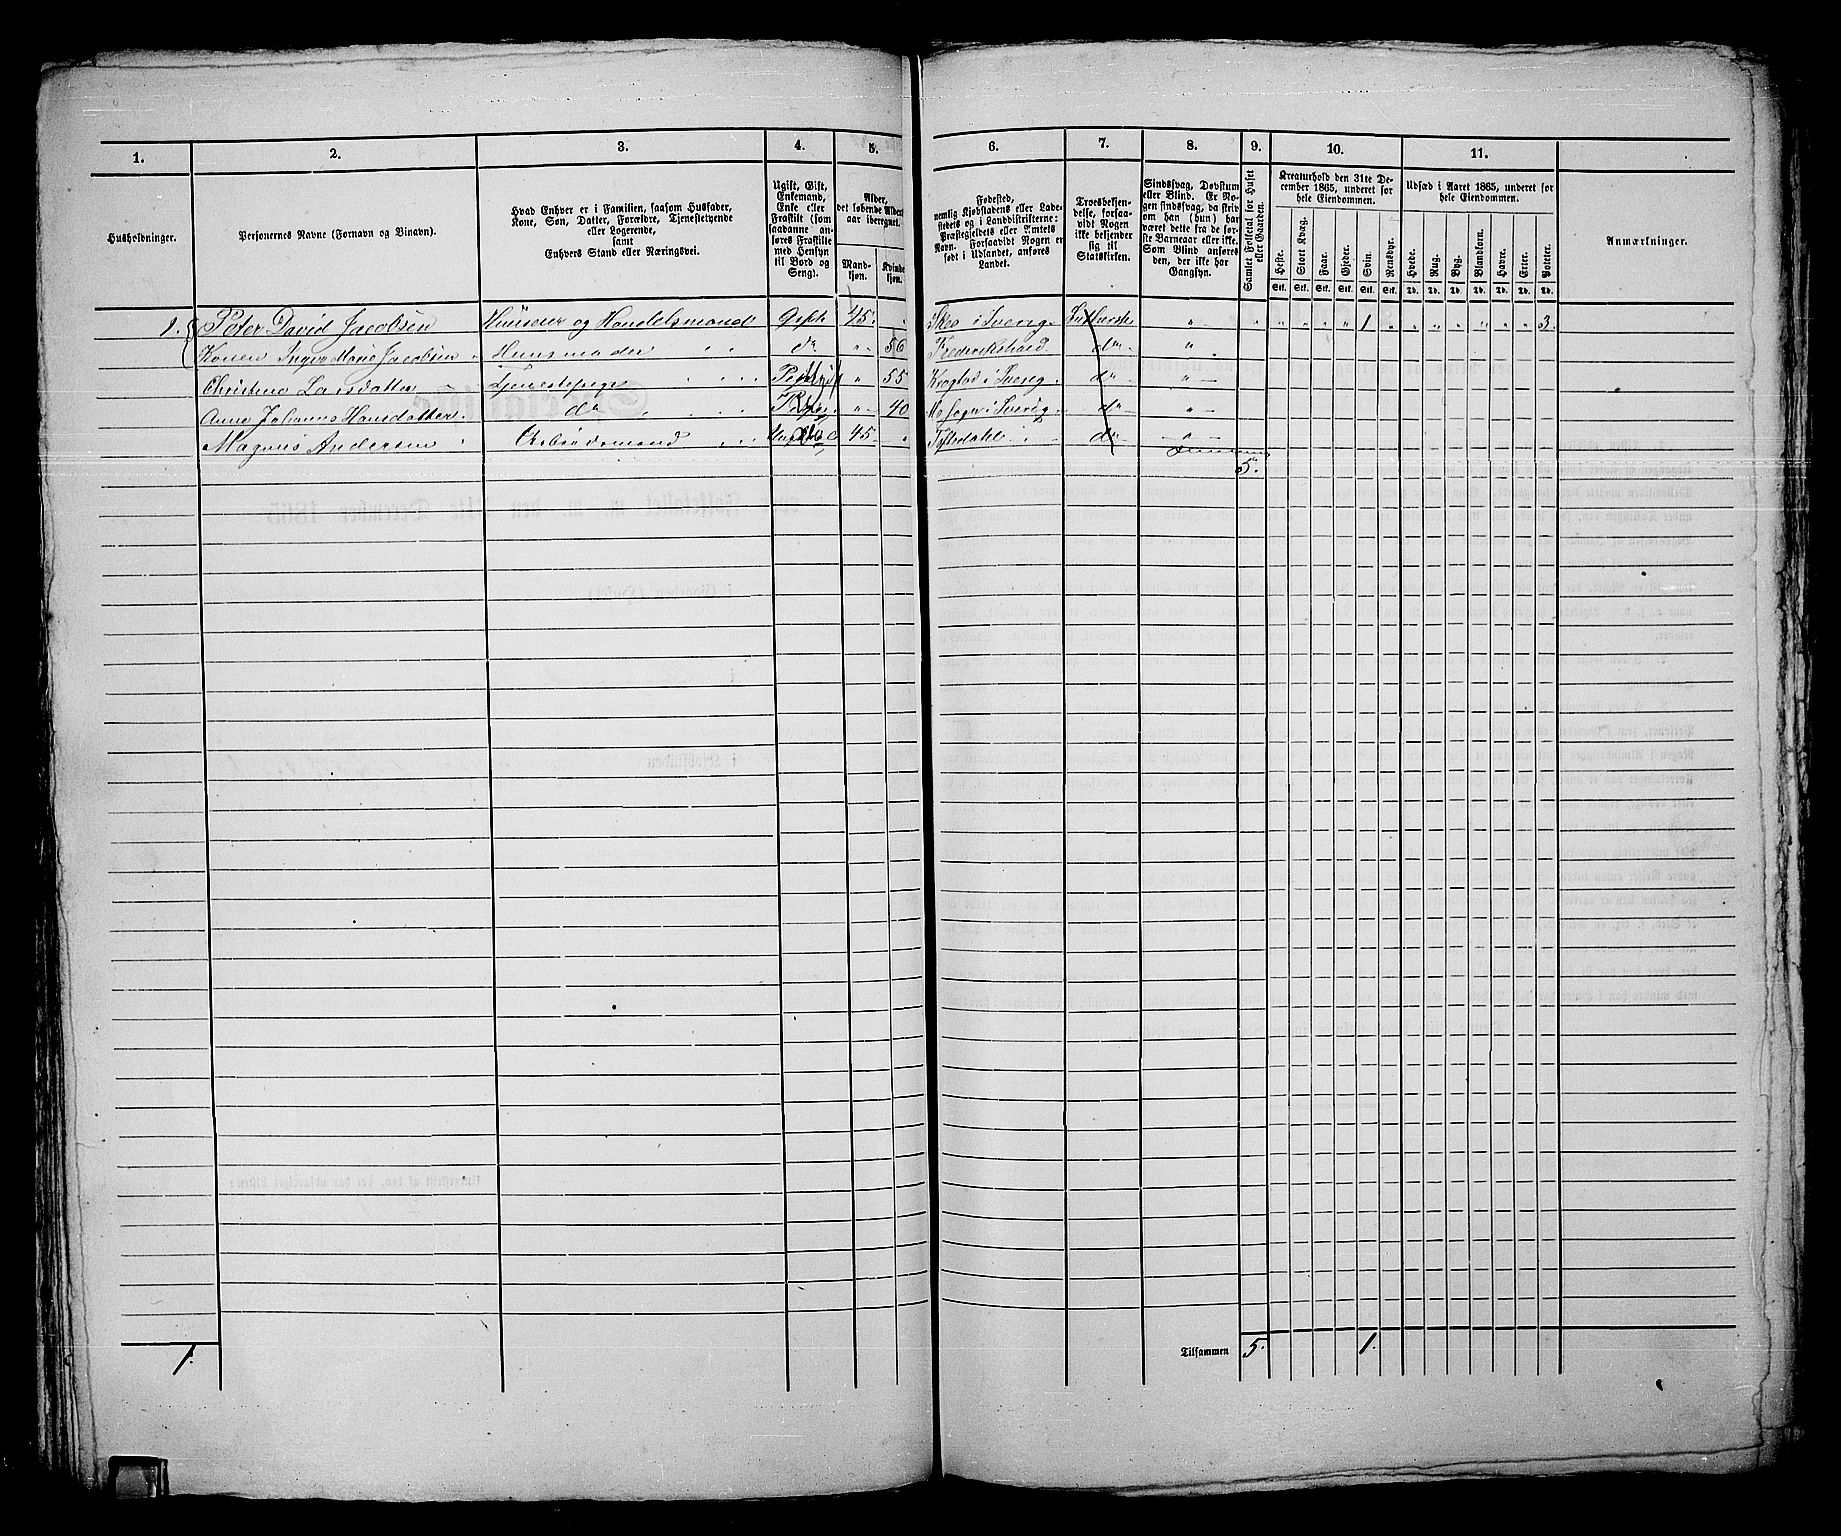 1. 2. 3. 4. 5. 6. 7. 8. 9. 10. 11.
Husholdninger.
Personernes Navne (Fornavn og Binavn).
Hvad Enhver er i Familien, saasom Husfader,
Kone, Søn, Datter, Forældre, Tjenestetyende
eller Logerende,
samt
Enhvers Stand eller Næringsvei.
Ugift, Gift,
Enkemand,
Enke eller
Fraskilt (som
saadanne an-
føres Fraskilte
med Hensyn
til Bord og
Seng).
Alder,
det løbende Alders-
aar iberegnet.
Mand-
kjøn.
Kvinde-
kjøn.
Fødested,
nemlig Kjøbstadens eller Lade-
stedets og i Landdistrikterne:
Præstegjeldets eller Amtets
Navn. Forsaavidt Nogen er
født i Udlandet, anføres
Landet.
Troesbekjen-
delse, forsaa-
vidt Nogen
ikke bekjender
sig til
Statskirken.
Sindssvag, Døvstum
eller Blind. Er No-
gen sindssvag, da skriv
om han (hun) har
været dette fra de før-
ste Barneaar eller ikke.
Som Blind anføres
den, der ikke har
Gangsyn.
Samlet Folketal for Huset
eller Gaarden.
Kreaturhold den 31te De-
cember 1865, underet for
hele Eiendommen.
Heste. Stort Kvæg. Faar. Gjeder. Svin. Rensdyr.
Stk. Stk. Stk. Stk. Stk. Stk.
Udsæd i Aaret 1865, underet for
hele Eiendommen.
Hvede. Rug. Byg. Blandkorn. Havre. Erter. Poteter.
Td. Td. Td. Td. Td. Td. Td.
Anmærkninger.
1. Peter David Jacobsen Huuseier og Handelsmand Gift 45. " Skeo i Sverig. Lutherske " " " " " " 1 " " " " " " " 3.
Konen Ingva Marie Jacobsen Huusmoder do " 56 Frederikshald do "
Christine Larsdatter Tjenestepige " 55 Krogstad i Sverig. do "
Anne Johanne Hansdatter. do " 40 Mo Sogn i Sverig do "
Magnus Andersen Arbeidsmand 45 " do "
5.
1. Tilsammen 5. 1.